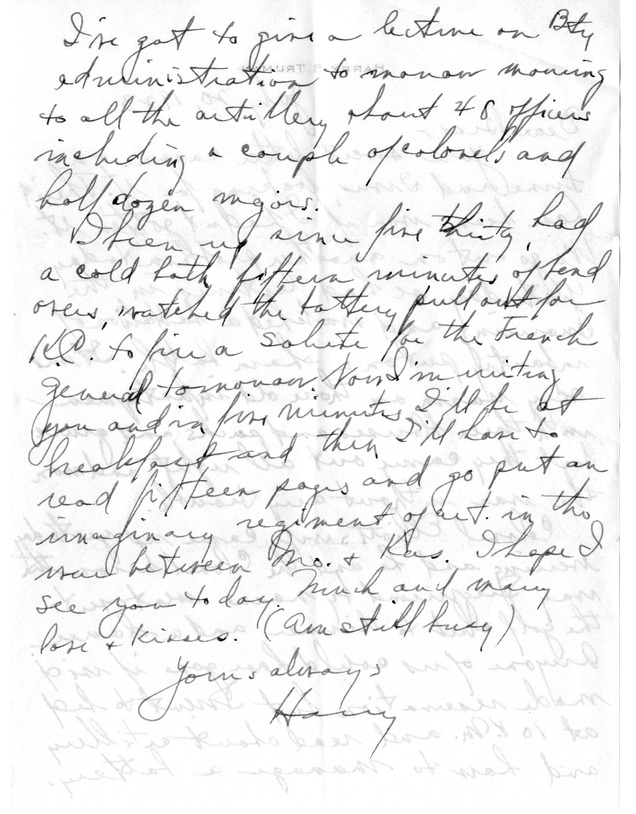 I've got to give a lecture on Bty
administration tomorrow morning
to all the artillery about 40 officers
including a couple of colonels and
half dozen majors.
I been up since five thirty, had
a cold bath fifteen minutes of bend
overs, watched the battery pull out for
K.C. to fire a salute for the French
general tomorrow. Now I'm writing
you and in five minutes I'll be at
breakfast and then I'll have to
read fifteen pages and go put an
imaginary regiment of art. in the
war between Mo. & Kas. I hope I
see you today. Much and many
love & kisses. (Am still busy)
Yours always
Harry